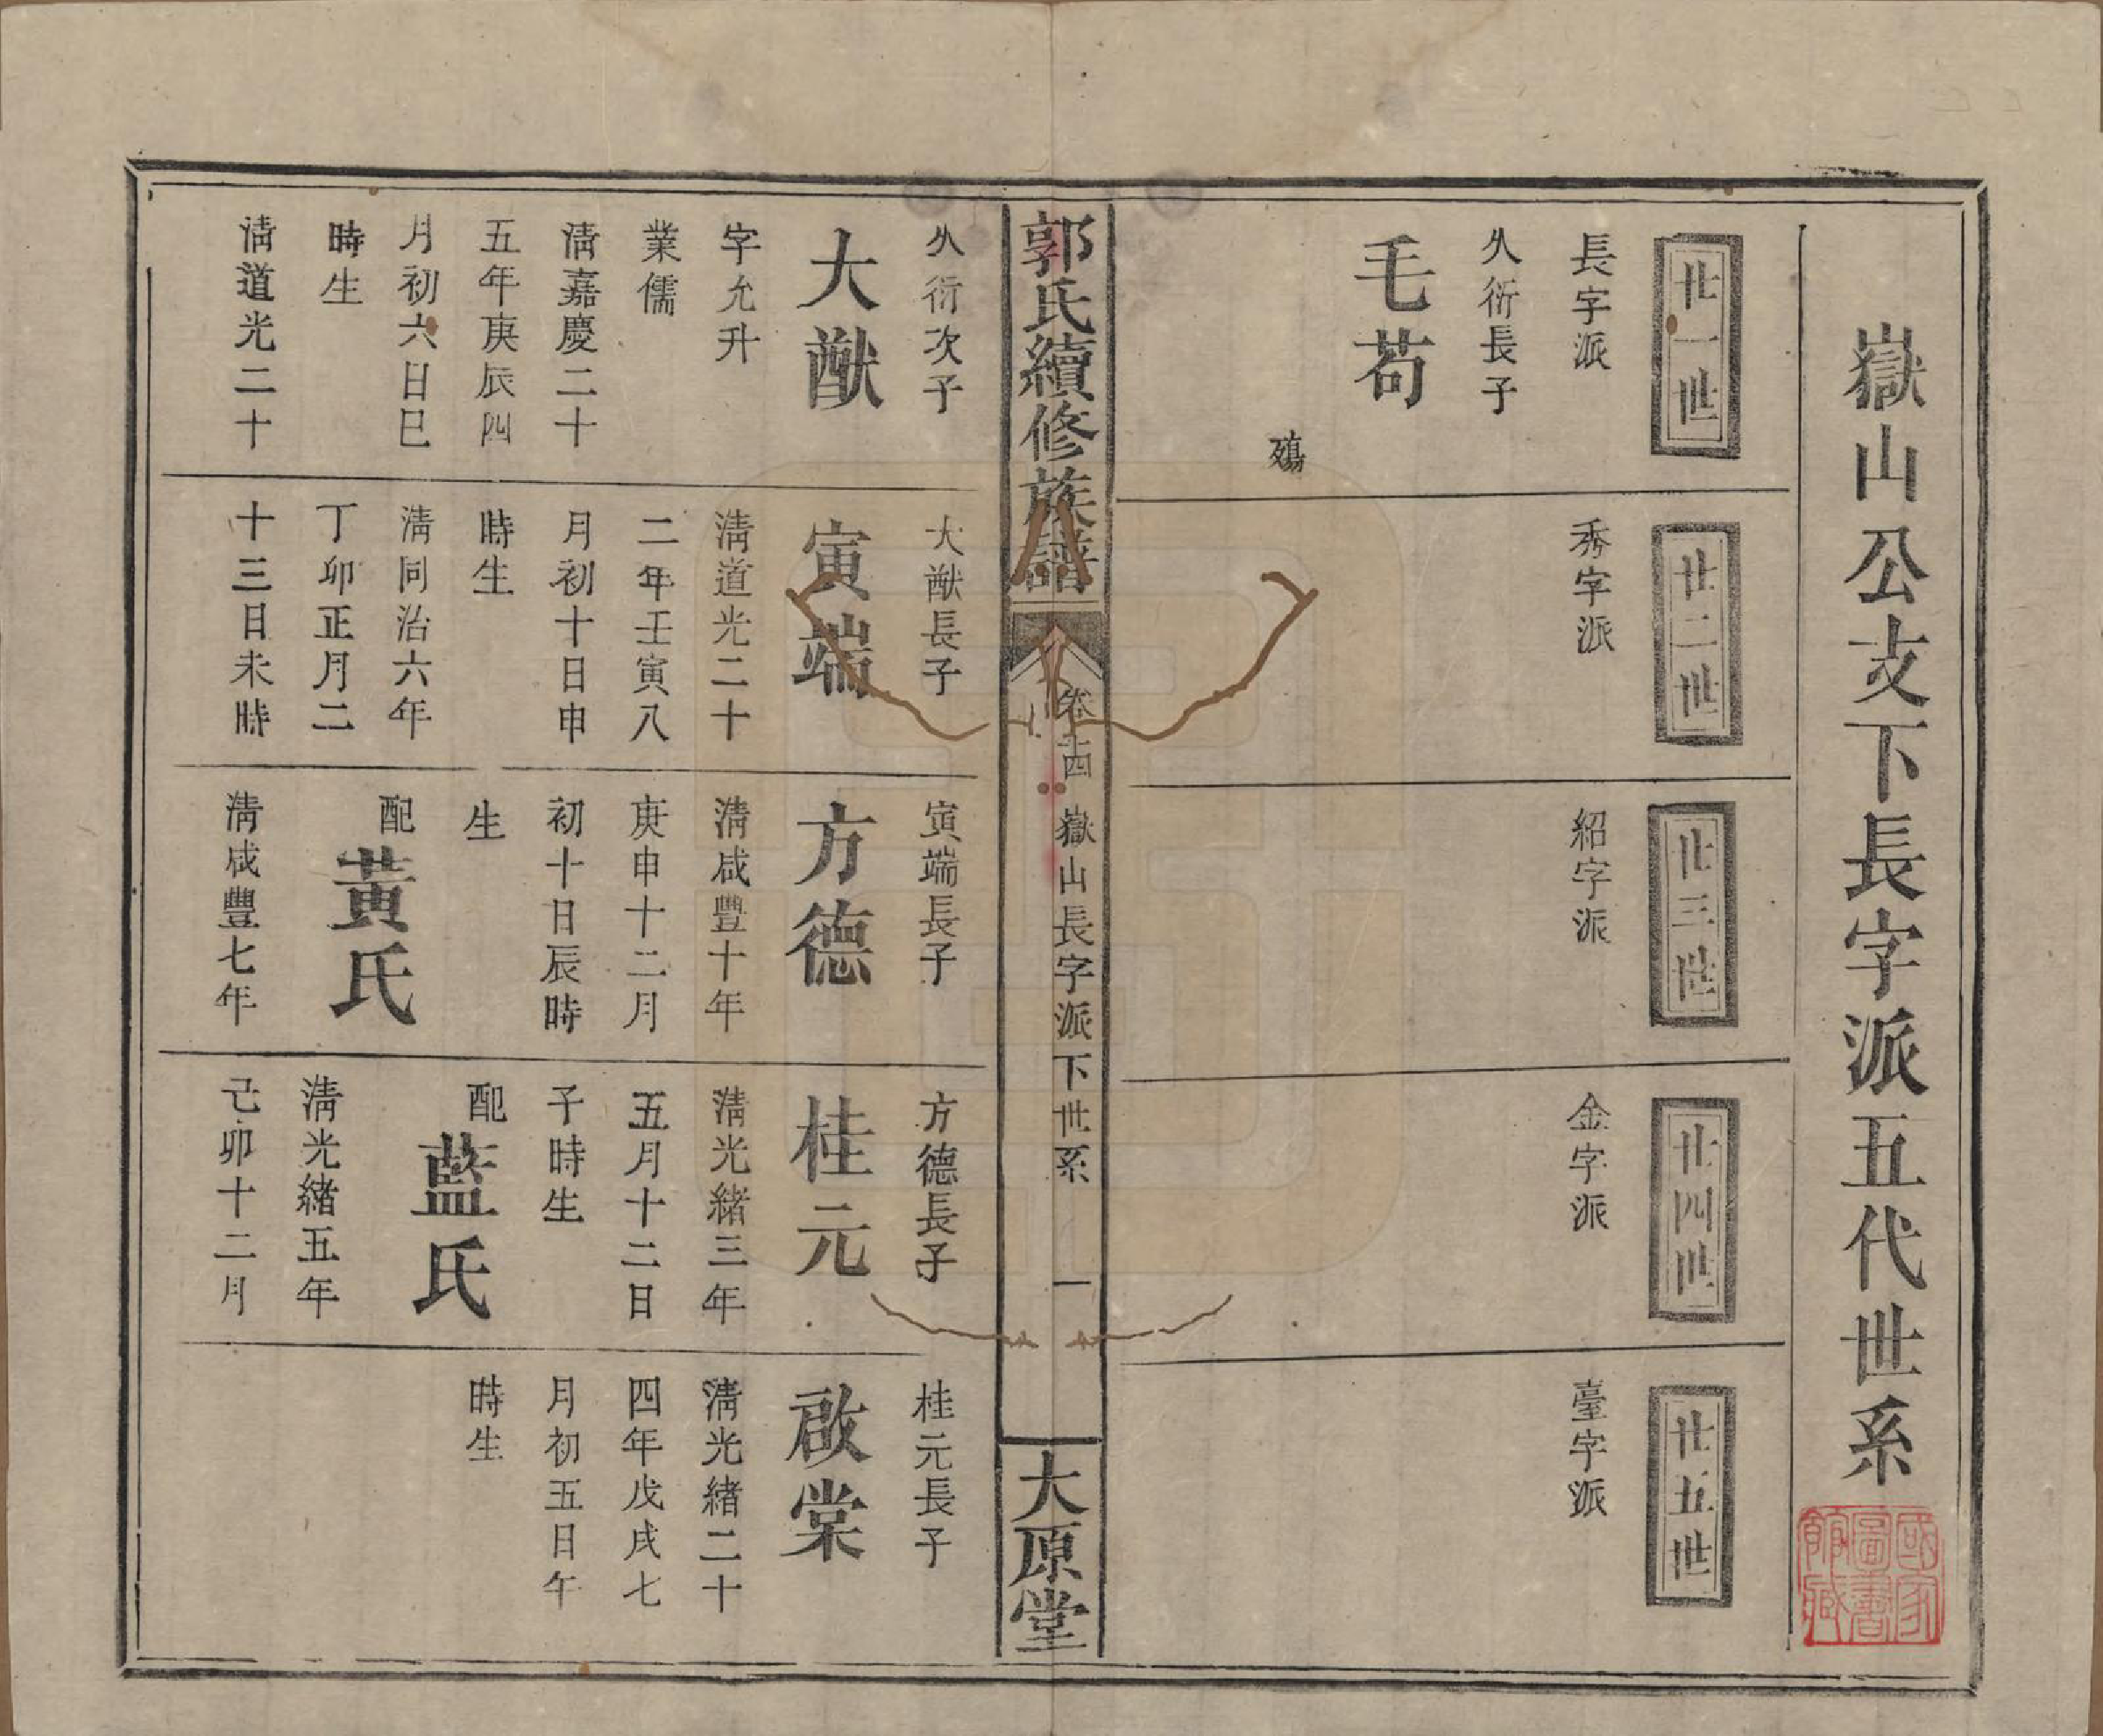 嶽山公支下長字派五代世系
國家圖書館藏
廿一世
長字派
久衍長子
毛苟
殤
廿二世
秀字派
廿三世
紹字派
廿四世
金字派
廿五世
臺字派
郭氏續修族譜
卷十四
嶽山長字派下世系
一
大原堂
久衍次子
大猷
字允升
業儒
淸嘉慶二十
五年庚辰四
月初六日巳
時生
淸道光二十
大猷長子
寅端
淸道光二十
二年壬寅八
月初十日申
時生
淸同治六年
丁卯正月二
十三日未時
寅端長子
方德
淸咸豐十年
庚申十二月
初十日辰時
生
配黃氏
淸咸豐七年
方德長子
桂元
淸光緒三年
五月十二日
子時生
配藍氏
淸光緒五年
己卯十二月
桂元長子
啟棠
淸光緒二十
四年戊戌七
月初五日午
時生